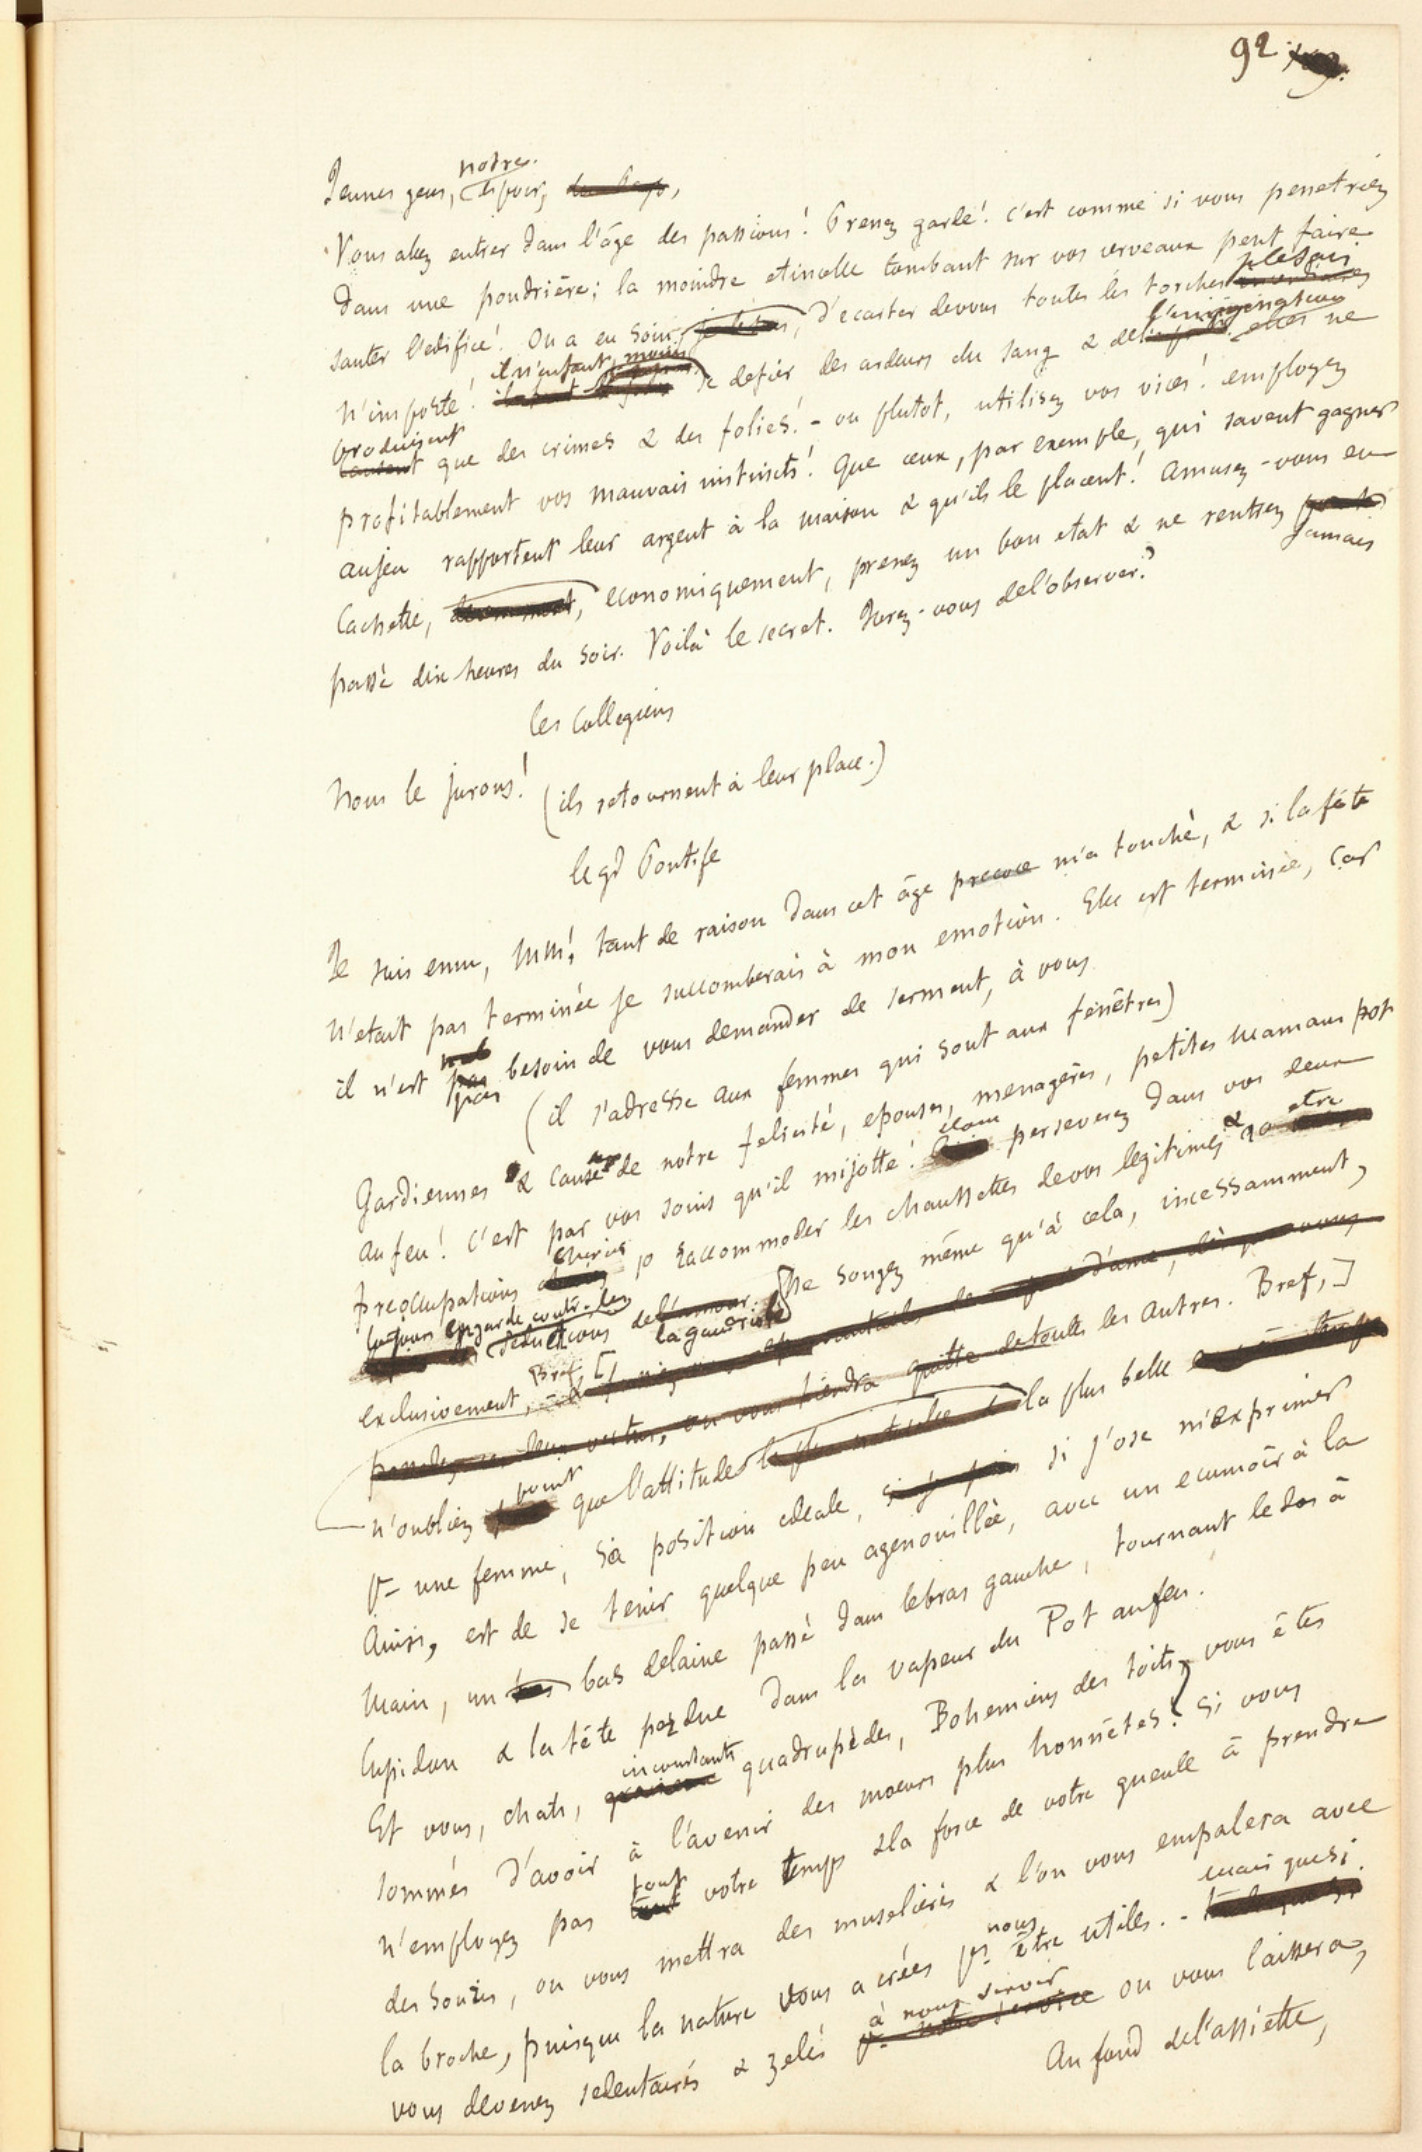 92
notre
Jeunes gens, espoir,
Vous allez entrer dans l'âge des passions! Prenez garde! c'est comme si vous penetriez
dans une poudrière; la moindre etincelle tombant sur vos cerveaux peut faire
sauter l'edifice! On a eu soin, d'ecarter devous toutes les torches
n'importe! il n'en faut moins se defier des ardeurs du sang & de l'imagination elles ne
produisent que des crimes & des folies! - ou plutot, utilisez vos vices! employez
profitablement vos mauvais instincts! Que ceux, par exemple, qui savent gagner
aujeu rapportent leur argent à la maison & qu'ils le placent! Amusez-vous en
cachette, economiquement, prenez un bon etat & ne rentrez jamais
passè dix heures du soir. Voilà le secret. Jurez-vous del'observer?
les Collegiens
Nous le jurons! (ils retournent à leur place.)
le gd Pontife
Je suis emu, MM! tant de raison dans cet âge precoce m'a touchè, & si la fête
n'etait pas terminée je succomberais à mon emotion. Elle est terminée, car
il n'est pas besoin de vous demander de serment, à vous
(il s'adresse aux femmes qui sont aux fenêtres)
Gardiennes & cause de notre felicité, epouses, menagères, petites mamans pot
au feu! c'est par vos soins qu'il mijotte! perseverez dans vos deux
preoccupations cheries, raccommoder les chaussettes devos legitimes & être
toujours en garde contre les seductions de la gaudriole. Ne songez même qu'à cela, incessamment,
exclusivement, Bref, quitte detoutes les autres. Bref,]
n'oubliez point que l'attitude la plus belle
pr une femme, sa position ideale, si j'ose m'exprimer
Ainsi, est de se tenir quelque peu agenouillée, avec un ecumoir à la
main, un bas delaine passè dans lebras gauche, tournant le dos à
Cupidon & la tête perdue dans la vapeur du Pot aufeu.
Et vous, chats, inconstants quadrupèdes, Bohemiens des toits, vous êtes
sommés d'avoir à l'avenir des moeurs plus honnêtes! Si vous
n'employez pas tout votre temps & la force de votre gueule à prendre
des souris, on vous mettra des muselières & l'on vous empalera avec
la broche, puisque la nature vous a crées pr nous être utiles. - mais que si
vous devenez sedentaires & zelés à nous servir on vous laissera,
Au fond del'assiette,